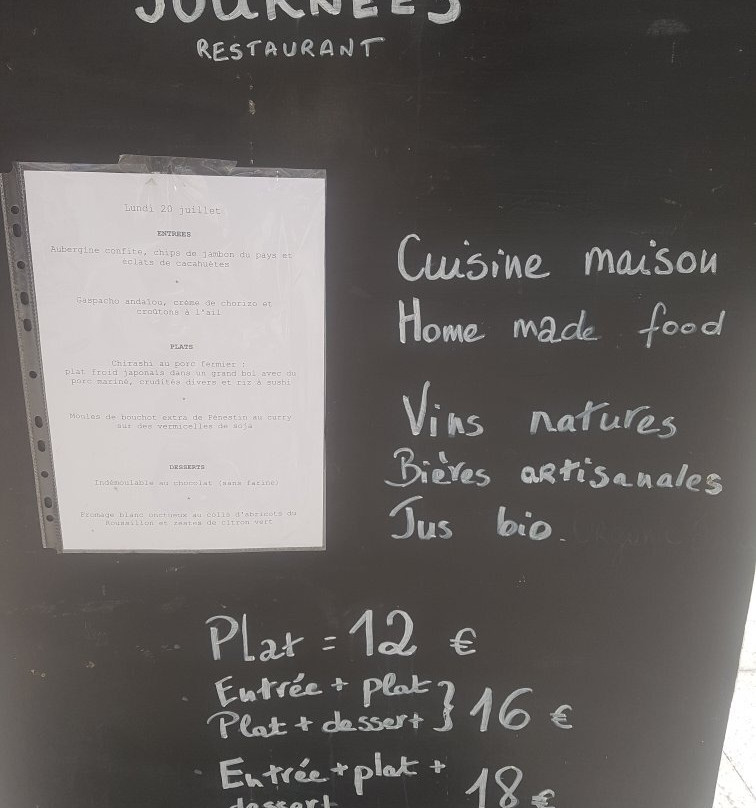 JOURNÉES
RESTAURANT
Lundi 20 juillet
ENTREES
Aubergine confite, chips de jambon du pays et
éclats de cacahuètes
*
Gaspacho andalou, crème de chorizo et
croûtons à l'ail
PLATS
Chirashi au porc fermier :
plat froid japonais dans un grand bol avec du
porc mariné, crudités divers et riz à sushi
*
Moules de bouchot extra de Pénestin au curry
sur des vermicelles de soja
DESSERTS
Indémoulable au chocolat (sans farine)
*
Fromage blanc onctueux au coulis d'abricots du
Roussillon et zestes de citron vert
Cuisine maison
Home made food
Vins natures
Bières artisanales
Jus bio.
Plat = 12 €
Entrée + plat
Plat + dessert } 16 €
Entrée + plat +
dessert 18 €